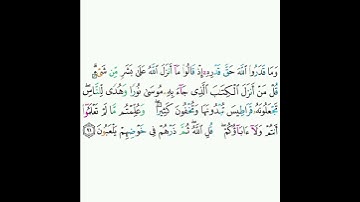 وَمَا قَدَرُوا۟ ٱللَّهَ حَقَّ قَدْرِهِۦٓ إِذْ قَالُوا۟ مَآ أَنزَلَ ٱللَّهُ عَلَىٰ بَشَرٍ مِّن شَىْءٍ ۗ
قُلْ مَنْ أَنزَلَ ٱلْكِتَٰبَ ٱلَّذِى جَآءَ بِهِۦ مُوسَىٰ نُورًا وَهُدًى لِّلنَّاسِ ۖ
تَجْعَلُونَهُۥ قَرَاطِيسَ تُبْدُونَهَا وَتُخْفُونَ كَثِيرًا ۖ وَعُلِّمْتُم مَّا لَمْ تَعْلَمُوٓا۟
أَنتُمْ وَلَآ ءَابَآؤُكُمْ ۖ قُلِ ٱللَّهُ ۖ ثُمَّ ذَرْهُمْ فِى خَوْضِهِمْ يَلْعَبُونَ ٩١